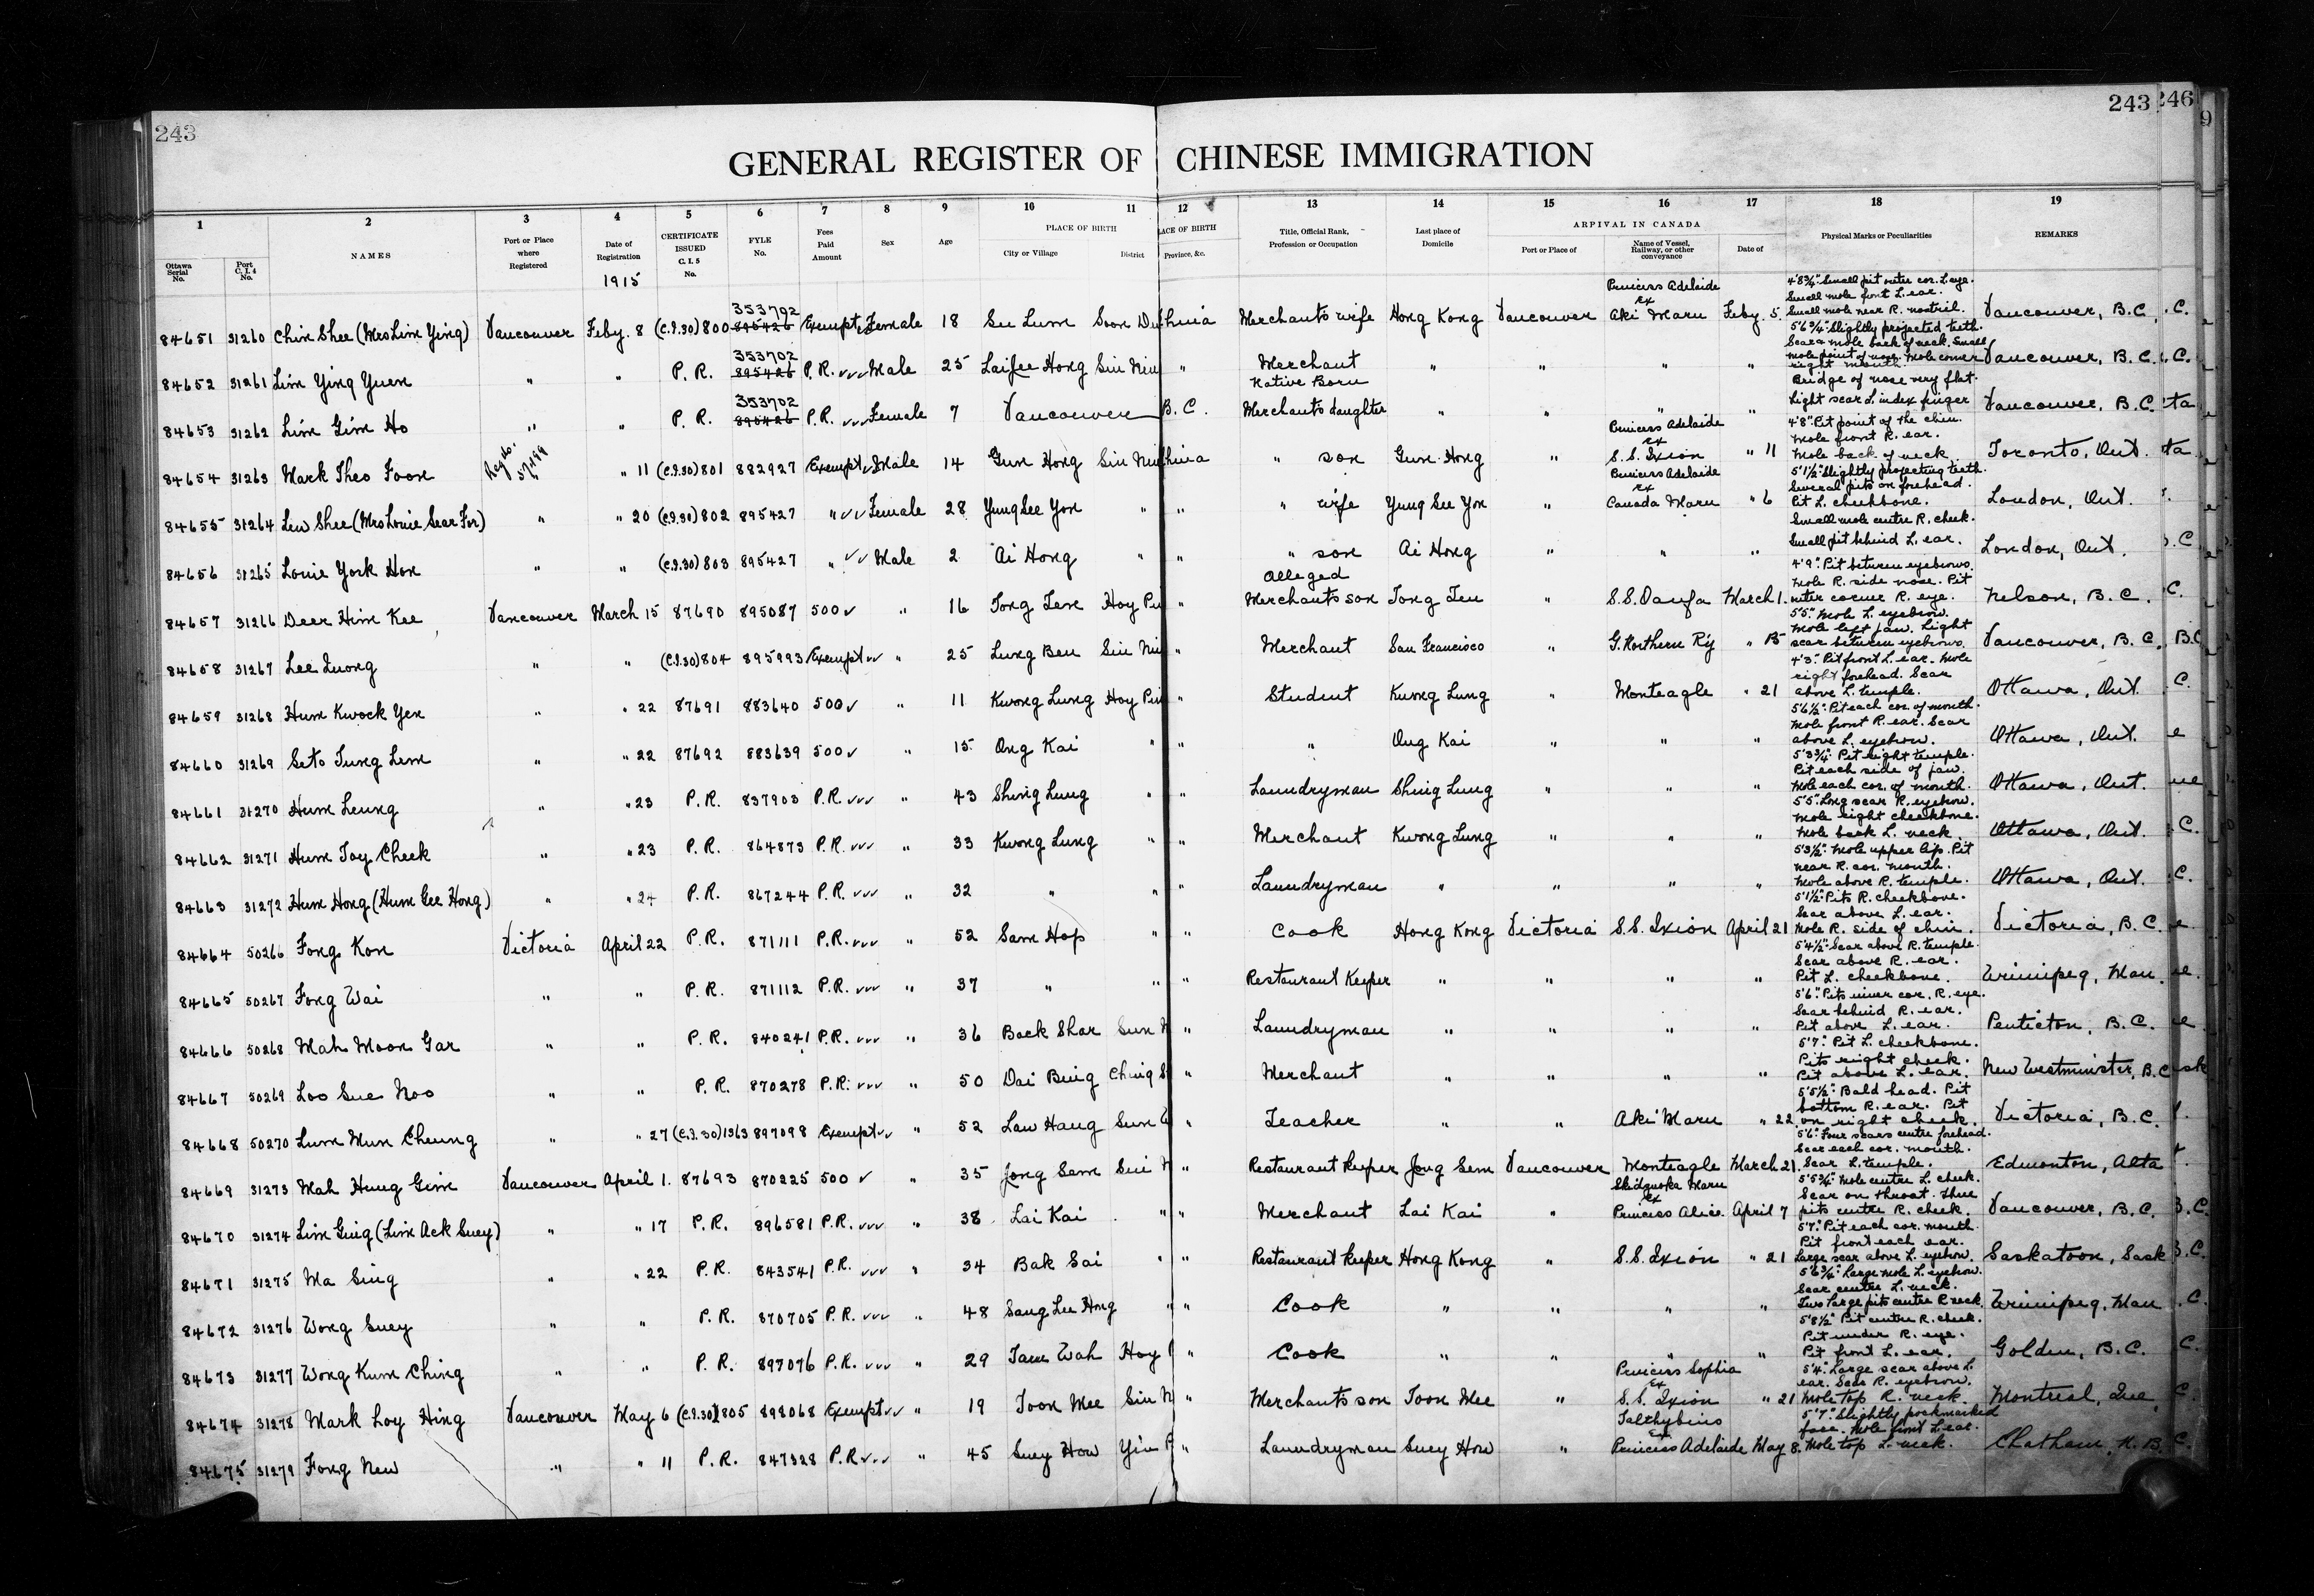 243 243 246
9
GENERAL REGISTER OF CHINESE IMMIGRATION
1 2 3 4 5 6 7 8 9 10 11 12 13 14 15 16 17 18 19
Ottawa Serial No. Port C. I. 4 No. NAMES Port or Place where Registered Date of Registration CERTIFICATE ISSUED C. I. 5 No. FYLE No. Fees Paid Amount Sex Age PLACE OF BIRTH City or Village District LACE OF BIRTH Province, &c. Title, Official Rank, Profession or Occupation Last place of Domicile ARPIVAL IN CANADA Port or Place of Name of Vessel, Railway, or other conveyance Date of Physical Marks or Peculiarities REMARKS
1915
84651 31260 Chin Shee (Mrs Lim Ying) Vancouver Feby. 8 (C.I.30) 800 353702 895426 Exempt Female 18 Su Lum Soon Du China Merchants wife Hong Kong Vancouver Princess Adelaide ex Aki Maru Feby. 5. 4'8¾" Small pit outer cor. L. eye. Small mole front L. ear. Small mole near R. nostril. Vancouver, B.C.
84652 31261 Lim Ying Yuen " " P. R. 353702 895426 P.R. Male 25 Laifee Hong Sin Nin " Merchant " " " " 5'6¾" Slightly projected teeth. Scar & mole back of neck. Small mole point of nose. Mole corner right mouth. Vancouver, B.C.
84653 31262 Lim Gim Ho " " P. R. 353702 895426 P.R. Female 7 Vancouver B.C. Native Born Merchants daughter " " " " Bridge of nose very flat. Light scar L. index finger Vancouver, B.C.
84654 31263 Mark Theo Foon " 11 (C.I.30) 801 882927 Exempt Male 14 Gun Hong Sin Nin China " son Gun Hong " Princess Adelaide ex S.S. Ixion " 11 4'8" Pit point of the chin. Mole front R. ear. Mole back of neck Toronto, Ont.
84655 31264 Lew Shee (Mrs Louie Sear For) " " 20 (C.I.30) 802 895427 " Female 28 Yung See Yon " " " wife Yung See Yon " Princess Adelaide ex Canada Maru " 6 5'1½" Slightly projecting teeth. Several pits on forehead. Pit L. cheekbone. London, Ont.
84656 31265 Louie York Hon " " (C.I.30) 803 895427 " Male 2 Ai Hong " " " son Ai Hong " " " Small mole centre R. cheek. Small pit behind L. ear. London, Ont.
84657 31266 Deer Him Kee Vancouver March 15 87690 895087 500 " 16 Tong Ten Hoy Pin " Alleged Merchants son Tong Ten " S.S. March 1. 4'9" Pit between eyebrows. Mole R. side nose. Pit outer corner R. eye. Nelson, B.C.
84658 31267 Lee Quong " " (C.I.30) 804 895993 Exempt " 25 Lung Ben Sin Nin " Merchant San Francisco " G. Northern Ry " 15 5'5" Mole L. eyebrow. Mole left jaw. Light scar between eyebrows. Vancouver, B.C.
84659 31268 Hum Kwock Yen " " 22 87691 883640 500 " 11 Kwong Lung Hoy Pin " Student Kwong Lung " Monteagle " 21 4'3" Pit front L. ear. Mole right forehead. Scar above L. temple. Ottawa, Ont.
84660 31269 Seto Tung Lem " " 22 87692 883639 500 " 15 Ong Kai " " " Ong Kai " " " 5'6½" Pit each cor. of mouth. Mole front R. ear. Scar above L. eyebrow. Ottawa, Ont.
84661 31270 Hum Leung " " 23 P. R. 837903 P.R. " 43 Shing Lung " " Laundryman Shing Lung " " " 5'3¾" Pit right temple. Pit each side of jaw. Mole each cor. of mouth. Ottawa, Ont.
84662 31271 Hum Toy Cheek " " 23 P. R. 864873 P.R. " 33 Kwong Lung " " Merchant Kwong Lung " " " 5'5" Long scar R. eyebrow. Mole right cheekbone. Mole back L. neck. Ottawa, Ont.
84663 31272 Hum Hong (Hum Gee Hong) " " 24 P. R. 867244 P.R. " 32 " " " Laundryman " " " " 5'3½" Mole upper lip. Pit near R. cor. mouth. Mole above R. temple. Ottawa, Ont.
84664 50266 Fong Kon Victoria April 22 P. R. 871111 P.R. " 52 Sam Hop " " Cook Hong Kong Victoria S.S. Ixion April 21 5'1½" Pits R. cheekbone. Scar above L. ear. Mole R. side of chin. Victoria, B.C.
84665 50267 Fong Wai " " P. R. 871112 P.R. " 37 " " " Restaurant Keeper " " " " 5'4½" Scar above R. temple. Scar above R. ear. Pit L. cheekbone. Winnipeg, Man
84666 50268 Mah Moon Gar " " P. R. 840241 P.R. " 36 Back Shar Sun N " Laundryman " " " " 5'6" Pits inner cor. R. eye. Scar behind R. ear. Pit above L. ear. Penticton, B.C.
84667 50269 Loo Sue Noo " " P. R. 870278 P.R. " 50 Dai Bing Ching S " Merchant " " " " 5'7" Pit L. cheekbone. Pits right cheek. Pit above L. ear. New Westminster, B.C.
84668 50270 Lum Mun Cheung " " 27 (C.I.30) 1363 897098 Exempt " 52 Law Hang Sun " Teacher " " Aki Maru " 22 5'5½" Bald head. Pit bottom R. ear. Pit on right cheek. Victoria, B.C.
84669 31273 Mah Hung Gim Vancouver April 1. 87693 870225 500 " 35 Jong Sem Sui N " Restaurant Keeper Jong Sem Vancouver Monteagle March 21. 5'6" Four scars centre forehead. Scar each cor. mouth. Scar L. temple. Edmonton, Alta
84670 31274 Lim Guig (Lim Ack Suey) " " 17 P. R. 896581 P.R. " 38 Lai Kai " " Merchant Lai Kai " Shidzuoka Maru ex Princess Alice April 7 5'5¾" Mole centre L. cheek. Scar on throat. Three pits centre R. cheek. Vancouver, B.C.
84671 31275 Ma Sing " " 22 P. R. 843541 P.R. " 34 Bak Sai " " Restaurant Keeper Hong Kong " S.S. Ixion " 21 5'7" Pit each cor. mouth. Pit front each ear. Large scar above L. eyebrow. Saskatoon, Sask
84672 31276 Wong Suey " " P. R. 870705 P.R. " 48 Sang Lee Hong " " Cook " " " " 5'6¾" Large mole L. eyebrow. Scar centre L. neck. Two large pits centre R neck. Winnipeg, Man
84673 31277 Wong Kum Ching " " P. R. 897076 P.R. " 29 Tam Wah Hoy " Cook " " " " 5'8½" Pit centre R. cheek. Pit under R. eye. Pit front L. ear. Golden, B.C.
84674 31278 Mark Loy Hing Vancouver May 6 (C.I.30) 805 898068 Exempt " 19 Toon Mee Sin N " Merchants son Toon Mee " Princess Sophia Ex S.S. Ixion " 21 5'4" Large scar above L. ear. Scar R. eyebrow. Mole top R. neck. Montreal, Que
84675 31279 Fong New " " 11 P. R. 847328 P.R. " 45 Suey How Yin P " Laundryman Suey How " Talthybius Ex Princess Adelaide May 8. 5'7" Slightly pockmarked face. Mole front L. ear. Mole top L. neck. Chatham, N.B.